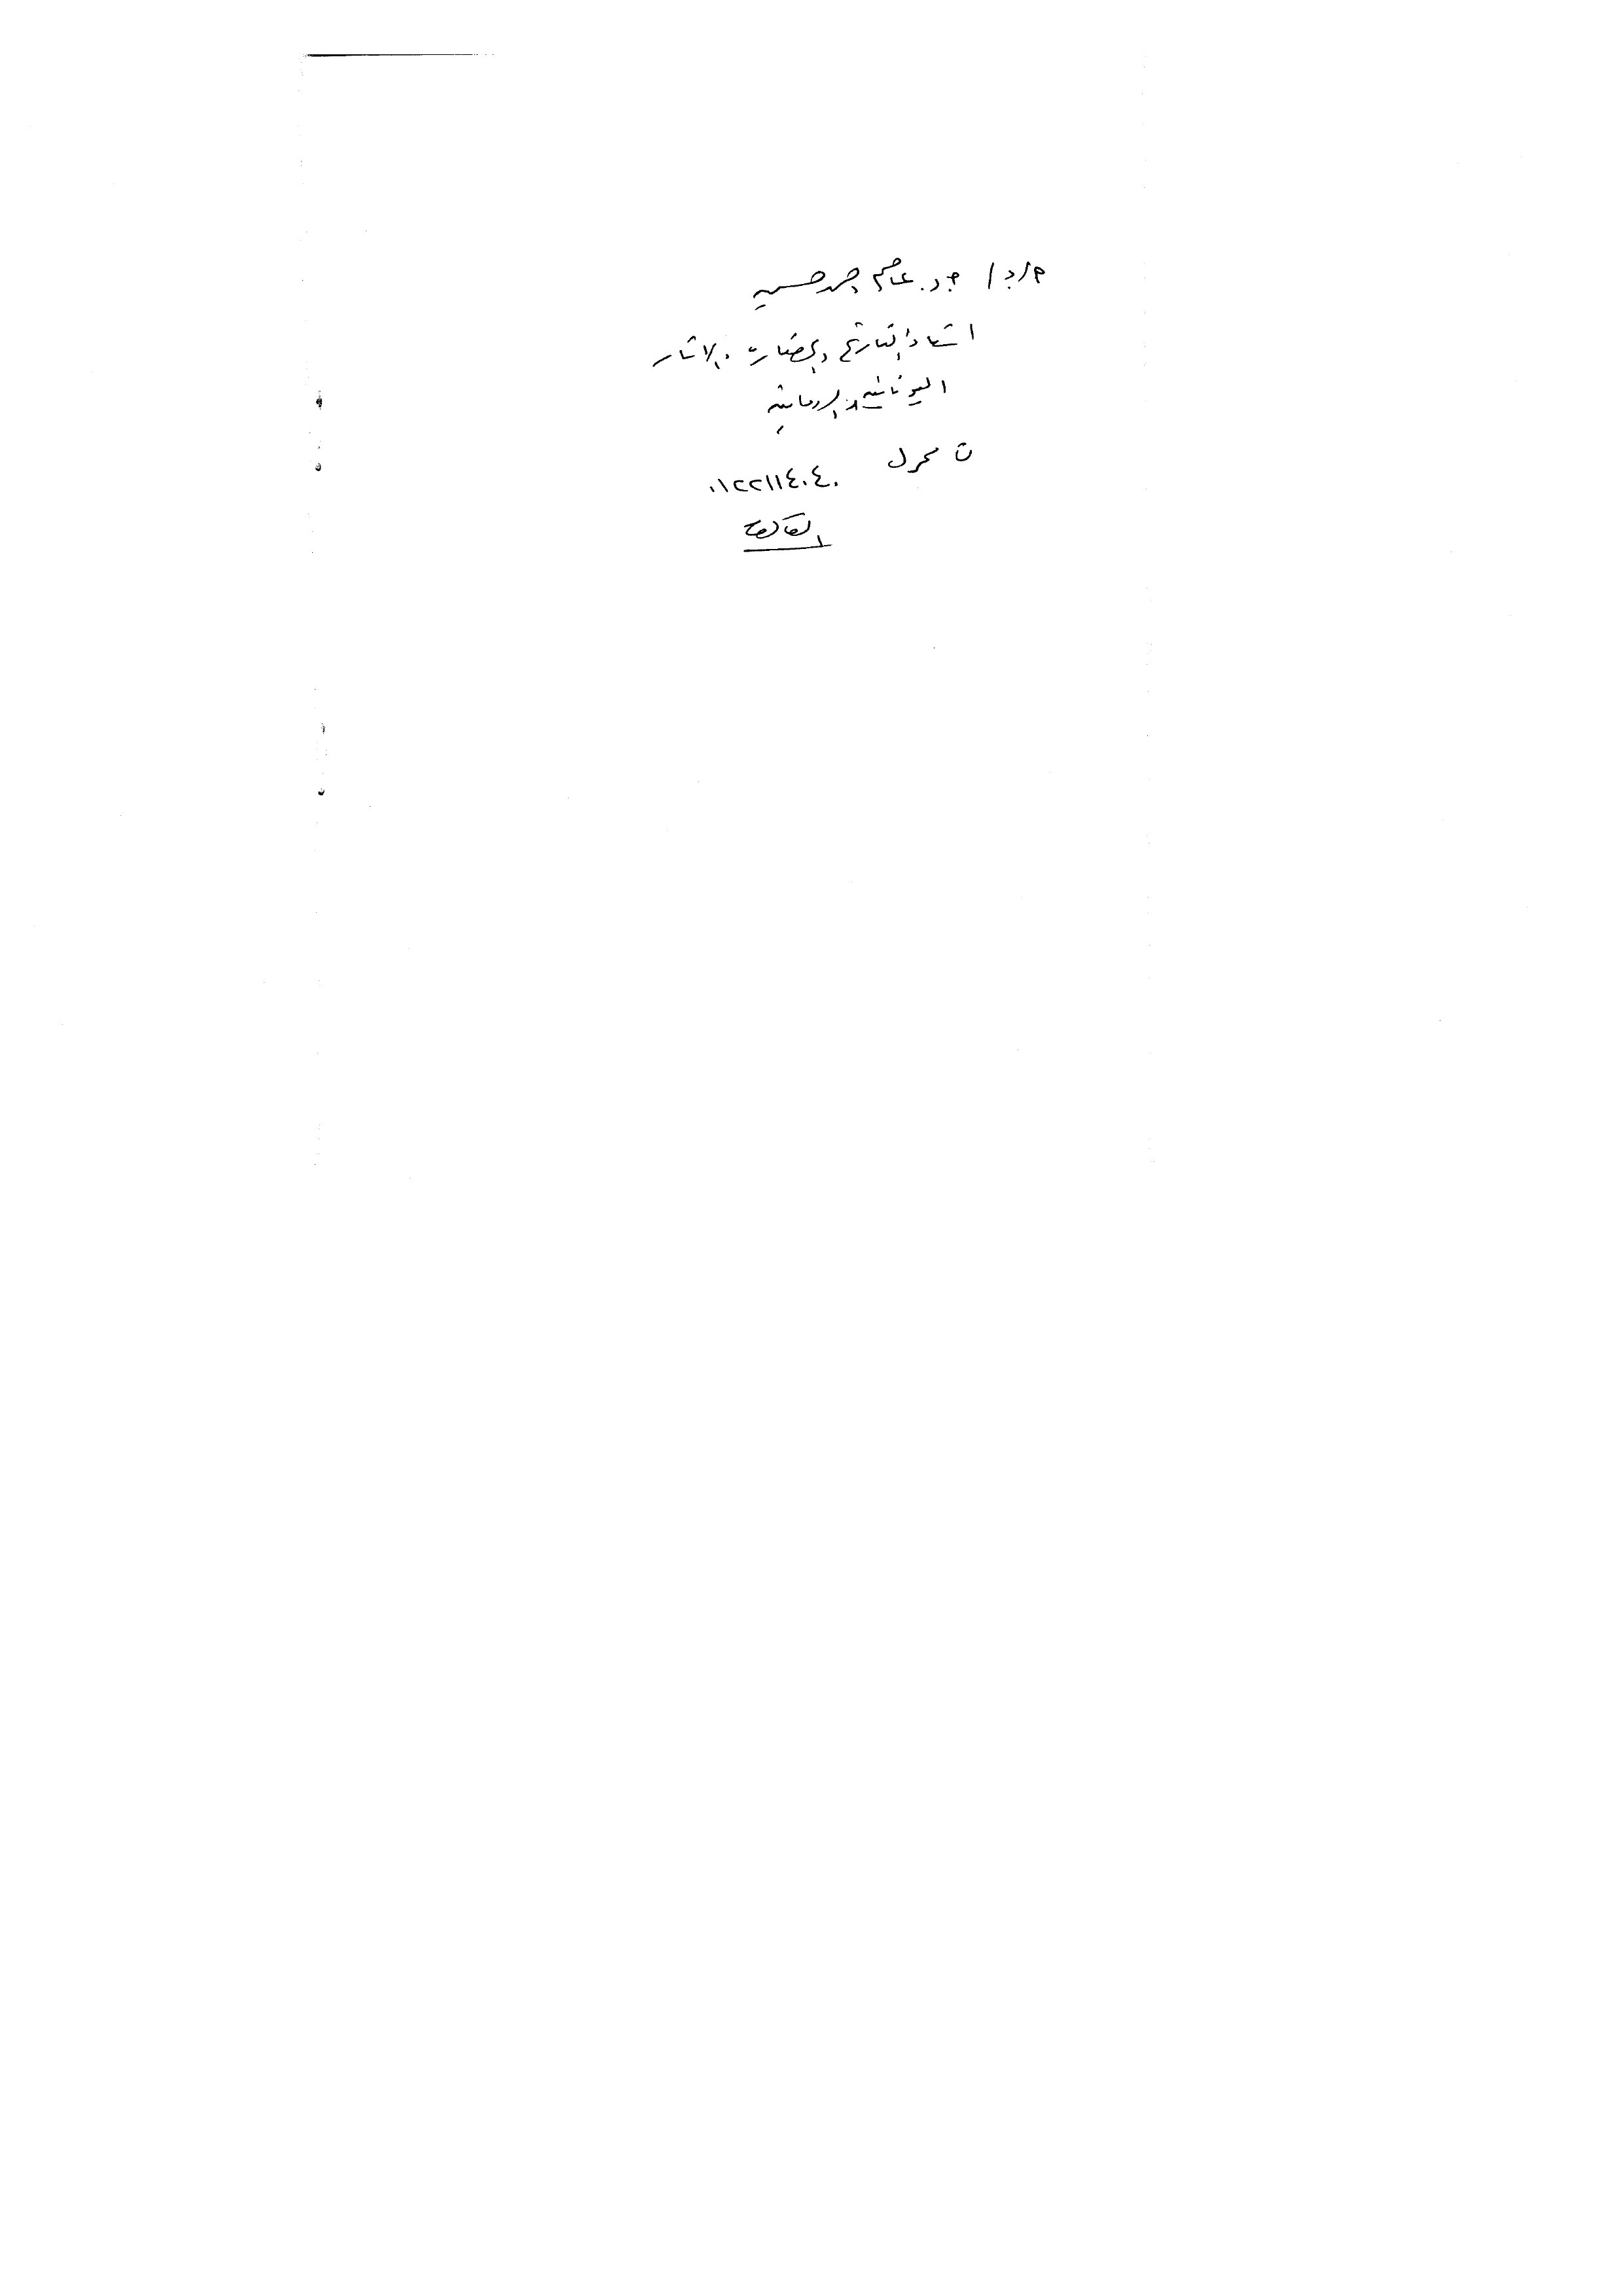 أ.د. عاصم أحمد حسين
استاذ التاريخ والحضارة والاثار
اليونانية والرومانية
ت محمول
٠١٢٢١١٤٠٤٠
القاهرة